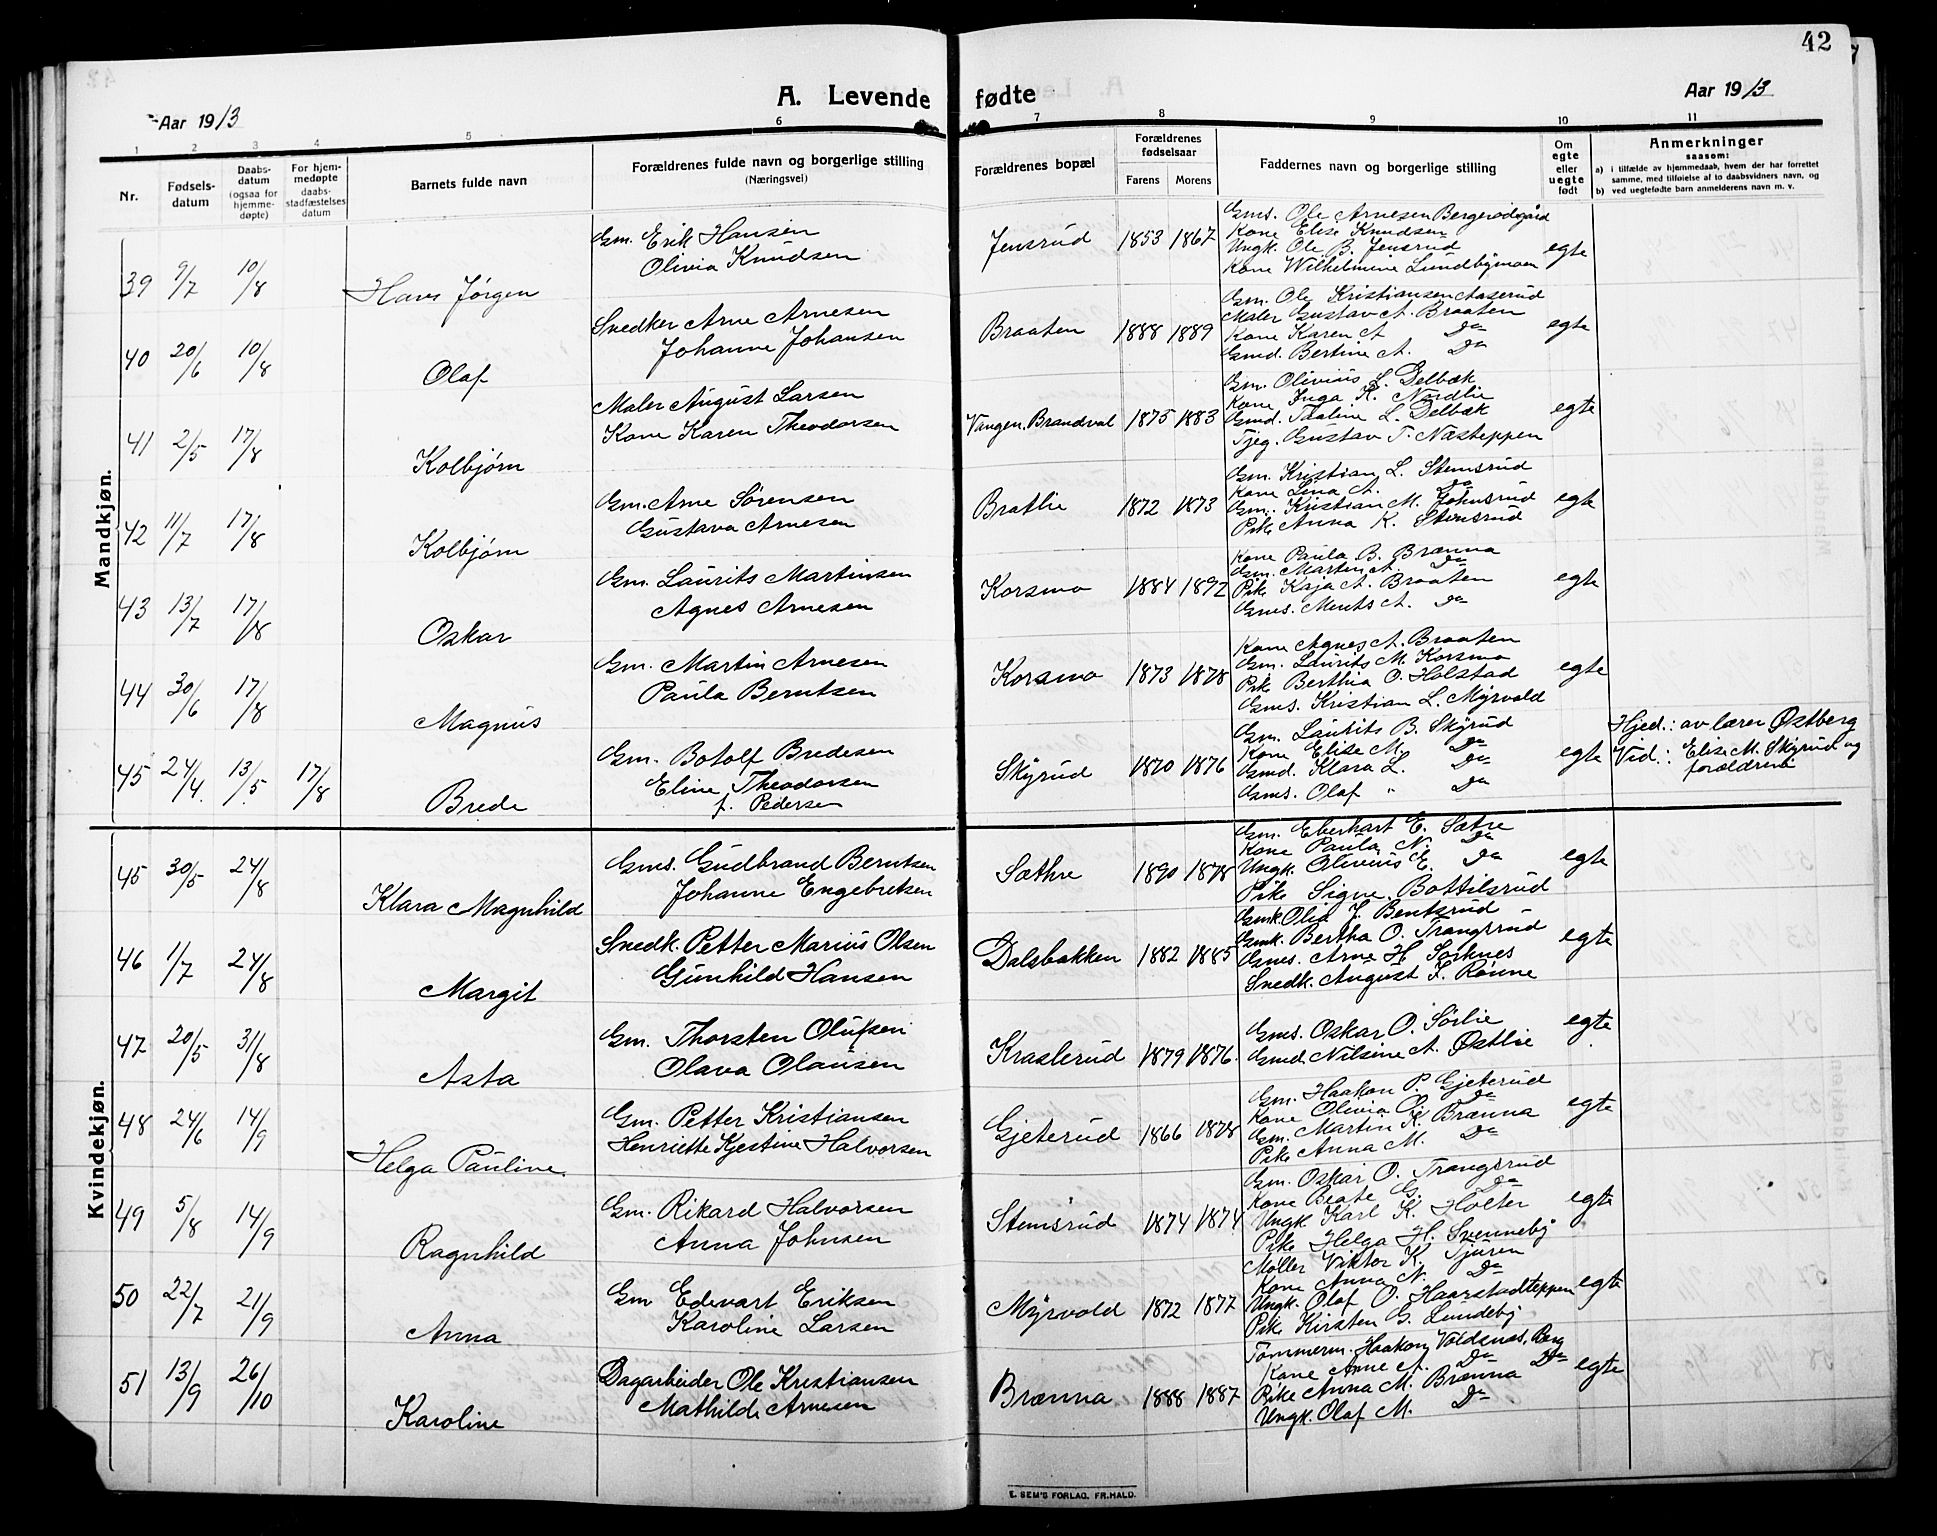 42
A. Levende fødte
Aar 1913
Aar 1913
1 2 3 4 5 6 7 8 9 10 11
Nr.
Fødsels-datum
Daabs-datum (ogsaa for hjemme-døpte)
For hjem-medøpte daabs-stadfæstelses datum
Barnets fulde navn
Forældrenes fulde navn og borgerlige stilling
(Næringsvei)
Forældrenes bopæl
Forældrenes fødselsaar
Farens Morens
Faddernes navn og borgerlige stilling
Om egte eller uegte født
Anmerkninger
saasom:
a) i tilfælde av hjemmedaab, hvem der har forrettet samme, med tilføielse af to daabsvidners navn, og
b) ved uegtefødte barn anmelderens navn m. v.
Mandkjøn.
39 9/7 10/8 Hans Jørgen
Gm. Erik Hansen
Olivia Knudsen
Jensrud 1853 1867
Gms. Ole Arnesen Bergerødgård
Kone Elise Knudsen
Ungk. Ole B. Jensrud
Kone Wilhelmine Lundbymoen
egte
40 20/6 10/8 Olaf
Snedker Arne Arnesen
Johanne Johansen
Braaten 1888 1889
Gm. Ole Kristiansen Aaserud
Maler Gustav A. Braaten
Kone Karen A Do
Gmd. Bertine A. Do
egte
41 2/5 17/8 Kolbjørn
Maler August Larsen
Kone Karen Theodorsen
Vangen, Brandval 1875 1883
Gm. Olivius L. Delbæk
Kone Inga K. Nordlie
Gmd. Thaline L. Delbæk
Tjeg. Gustav T. Næsteppen
egte
42 11/7 17/8 Kolbjørn
Gm. Arne Sørensen
Gustava Arnesen
Bratlie 1872 1873
Gm. Kristian L. Stemsrud
Kone Lina A. Do
Gm. Kristian M. Johnsrud
Pike Anna K. Stemsrud
egte
43 13/7 17/8 Oskar
Gm. Laurits Martinsen
Agnes Arnesen
Korsmo 1884 1892
Kone Paula B. Brænna
Gm. Martin A. Do
Pike Kaja A. Braaten
Gms. Mentz A. Do
egte
44 30/6 17/8 Magnus
Gm. Martin Arnesen
Paula Berntsen
Korsmo 1873 1878
Kone Agnes A. Braaten
Gm. Laurits M. Korsmo
Pike Berthia O. Holstad
Gms. Kristian L. Myrvold
egte
45 24/4 13/5 17/8 Brede
Gm. Botolf Bredesen
Eline Theodorsen
f. Pedersen
Skyrud 1870 1876
Gm. Laurits B. Skyrud
Kone Elise M. Do
Gmd. Klara L. Do
Gms. Olaf " Do
egte
Hjed.: av lærer Østberg
Vid.: Elise M. Skyrud og
forældrene
Kvindekjøn.
45 30/5 24/8 Klara Magnhild
Gms. Gudbrand Berntsen
Johanne Engebretsen
Sæthre 1890 1878
Gm. Eberhart E. Sætre
Kone Paula N. Do
Ungk. Olivius E. Do
Pike Signe Bottilsrud
egte
46 1/7 24/8 Margit
Snedk. Petter Marius Olsen
Gunhild Hansen
Dalsbakken 1882 1885
Gmk. Olia J. Bentsrud
Gmk. Bertha O. Trangsrud
Gms. Arne H. Sorknes
Snedk. August L. Rønne
egte
47 20/5 31/8 Asta
Gm. Thorsten Olufsen
Olava Olausen
Kraslerud 1879 1876.
Gms. Oskar O. Sørlie
Gmd Nilsine A. Østlie
egte
48 24/6 14/9 Helga Pauline.
Gm. Petter Kristiansen
Henriette Kjestine Halvorsen
Gjeterud 1866 1878
Gm. Haakon P. Gjeterud
Kone Olivia O. Do
Gm. Martin K. Brænna
Pike Anna M. Do
egte
49 5/8 14/9 Ragnhild
Gm. Rikard Halvorsen
Anna Johnsen
Stemsrud 1874 1874
Gm. Oskar O. Trangsrud
Kone Beate G. Do
Ungk. Karl K. Holter
Pike Helga H. Svenneby
egte
50 22/7 21/9 Anna
Gm Edevart Eriksen
Karoline Larsen
Myrvold 1872 1877
Møller Viktor K. Tjuren
Kone Anna N. Do
Ungk. Olaf O. Haarstadteppen
Pike Kirsten G. Lundeby
egte
51 13/9 26/10 Karoline
Dagarbeider Ole Kristiansen
Mathilde Arnesen
Brænna 1888 1887
Tømmerm. Haakon Voldenæs, Berg
Kone Arne A. Do Do
Pike Anna M. Brænna
Ungk. Olaf M. Do
egte
E. SEM'S FORLAG, FR.HALD.